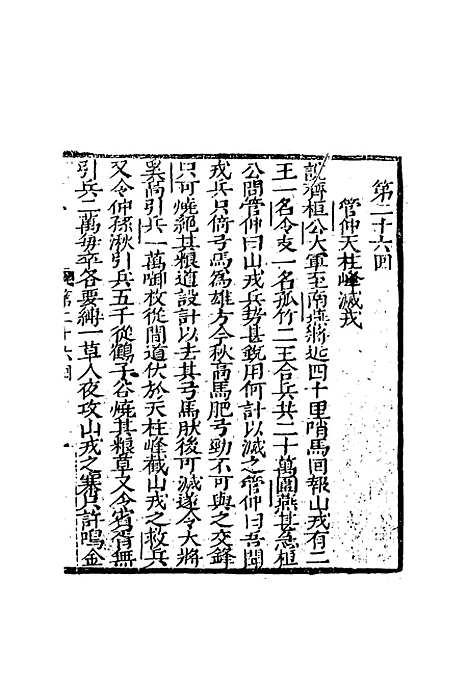 第二十六回
管仲天柱峰滅戎
說齊桓公大軍至南燕將近四十里哨馬回報山戎有二
王一名令支一名孤竹二王合兵共二十萬圍燕甚急桓
公問管仲曰山戎兵勢甚銳用何計以滅之管仲曰吾聞
戎兵只倚弓馬為雄方今秋高馬肥弓勁不可與之交鋒
只可燒絕其粮道設計以去其弓馬肰後可滅遂令大將
吳高引兵一萬啣枚從間道伏於天柱峰截山戎之救兵
又令仲孫湫引兵五千從鶴子谷燒其粮草又令賓胥無
引兵二萬每卒各要縛一草人夜攻山戎之寨只許鳴金
第二十六回